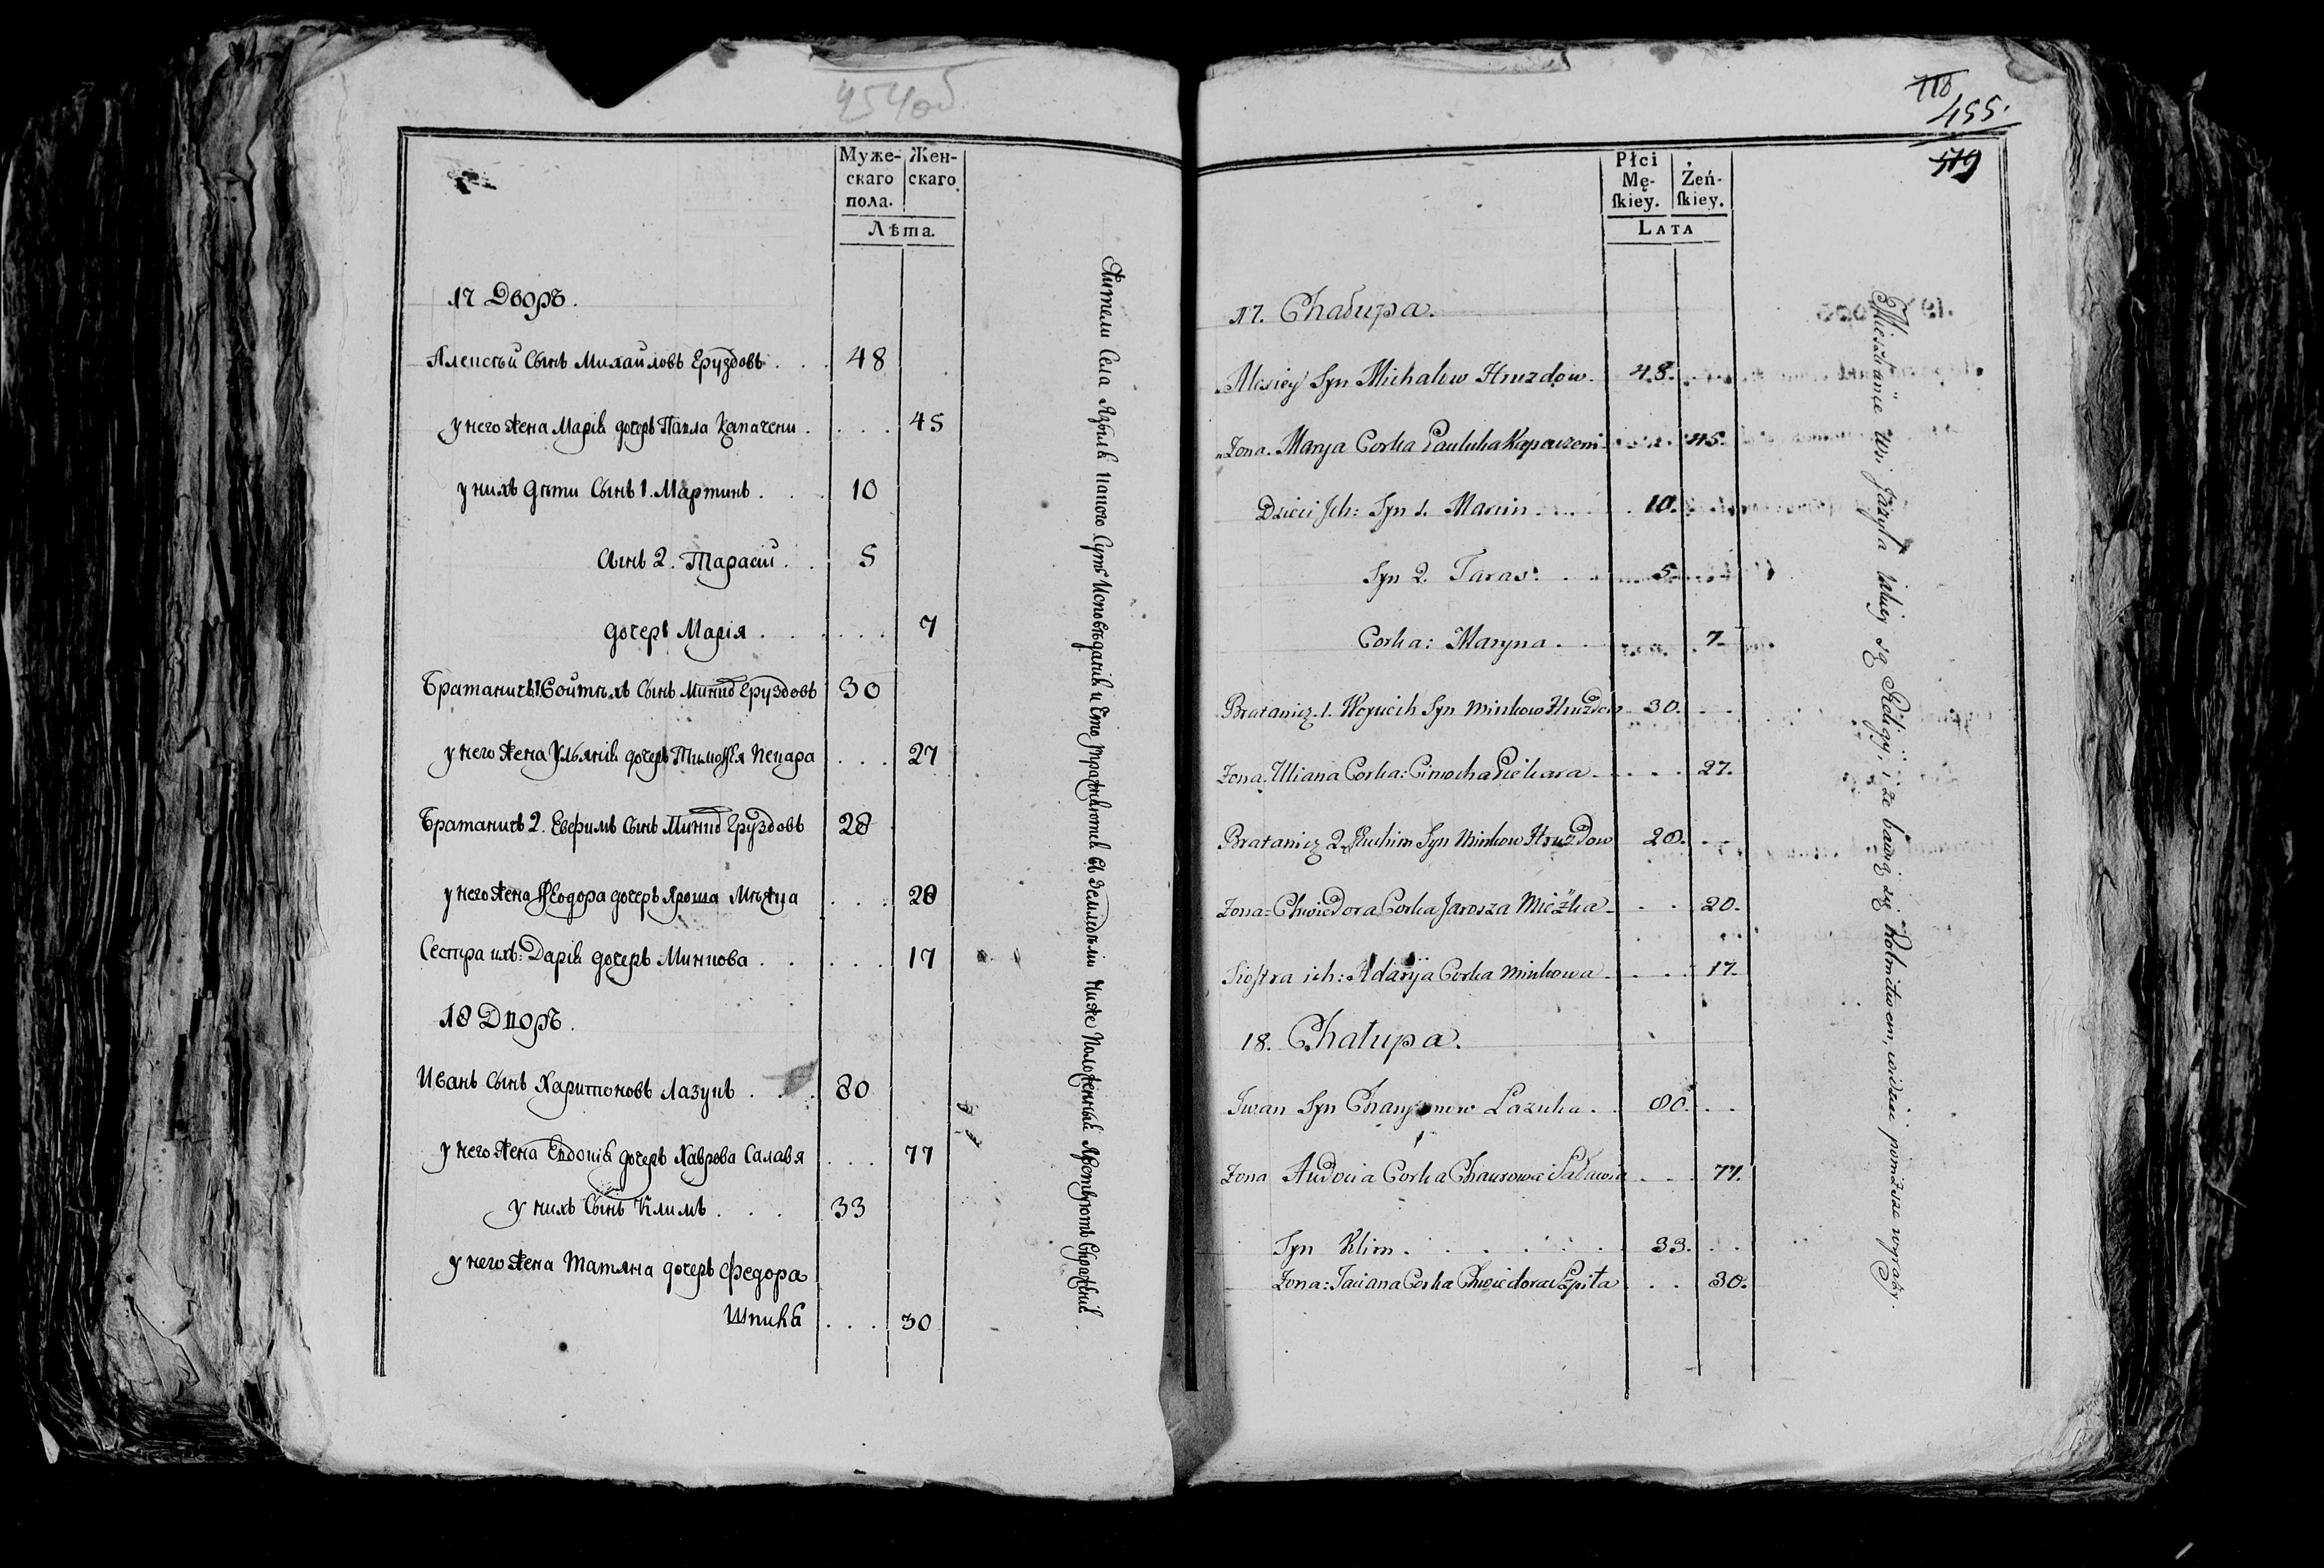 454об
Муже- Жен-
скаго скаго
пола.
Лѣта.
17 Дворъ.
Алексѣй Сынъ Михайловъ Груздовъ . . . 48
у него жена Марія дочерь Павла Капачени . . . . 45
у нихъ дѣти Сынъ 1. Мартинъ . . . 10
Сынъ 2. Тарасій . . 5
дочерь Марія . . . . . . 7
Братаничъ 1 Войтѣхъ Сынъ Минковъ Груздовъ 30
у него жена Ульянія дочерь Тимофѣя Пекара . . . 27
Братаничъ 2. Евфимъ Сынъ Минковъ Груздовъ 28
у него жена Ѳеодора дочерь Яроша Мѣжка . . . 20
Сестра ихъ: Дарія дочерь Минкова . . . . . 17
18 Дворъ.
Иванъ Сынъ Харитоновъ Лазука . . . 80
у него жена Евдокія дочерь Хаврова Салавя . . . 77
у нихъ Сынъ Климъ . . . 33
у него жена Татяна дочерь Федора
Шпика . . . 30
Жители Села Языля такого Суть Исповѣданія и Что упражняются въ Земледѣліи Ниже Положенный
118
455.
519
Płci Żeń-
Mę- ſkiey.
ſkiey.
LATA
17. Chałupa.
Alexiey Syn Michałow Hruzdow. 48.
Zona. Marya Corka Pauluka Kapaczeni . . 45.
Dzieci Ich: Syn 1. Marcin . . . . 10.
Syn 2. Taras. . . 5.
Corka: Maryna . . . 7.
Bratanicz. 1. Woyciech Syn Minkow Hruzdow 30. . .
Zona. Uliana Corka: Cimocha Piekara . . . . 27.
Bratanicz 2. Euchim Syn Minkow Hruzdow 28. . .
Zona: Chwiedora Corka Jarosza Mieżka . . . 20.
Siostra ich: Adarya Corka Minkowa . . . . 17.
18. Chałupa.
Iwan Syn Charytonow Łazuka . . 80. . .
Zona Audocia Corka Chaurowa Saławia . . . 77.
Syn Klim . . . . . . . 33. . .
Zona: Taciana Corka Chwiedora Szpita . . . 30.
Mieszkańce Wsi Jazyla takiey są Religij, i że bawią się Rolnictwem, widzieć poniższe wyrazy.